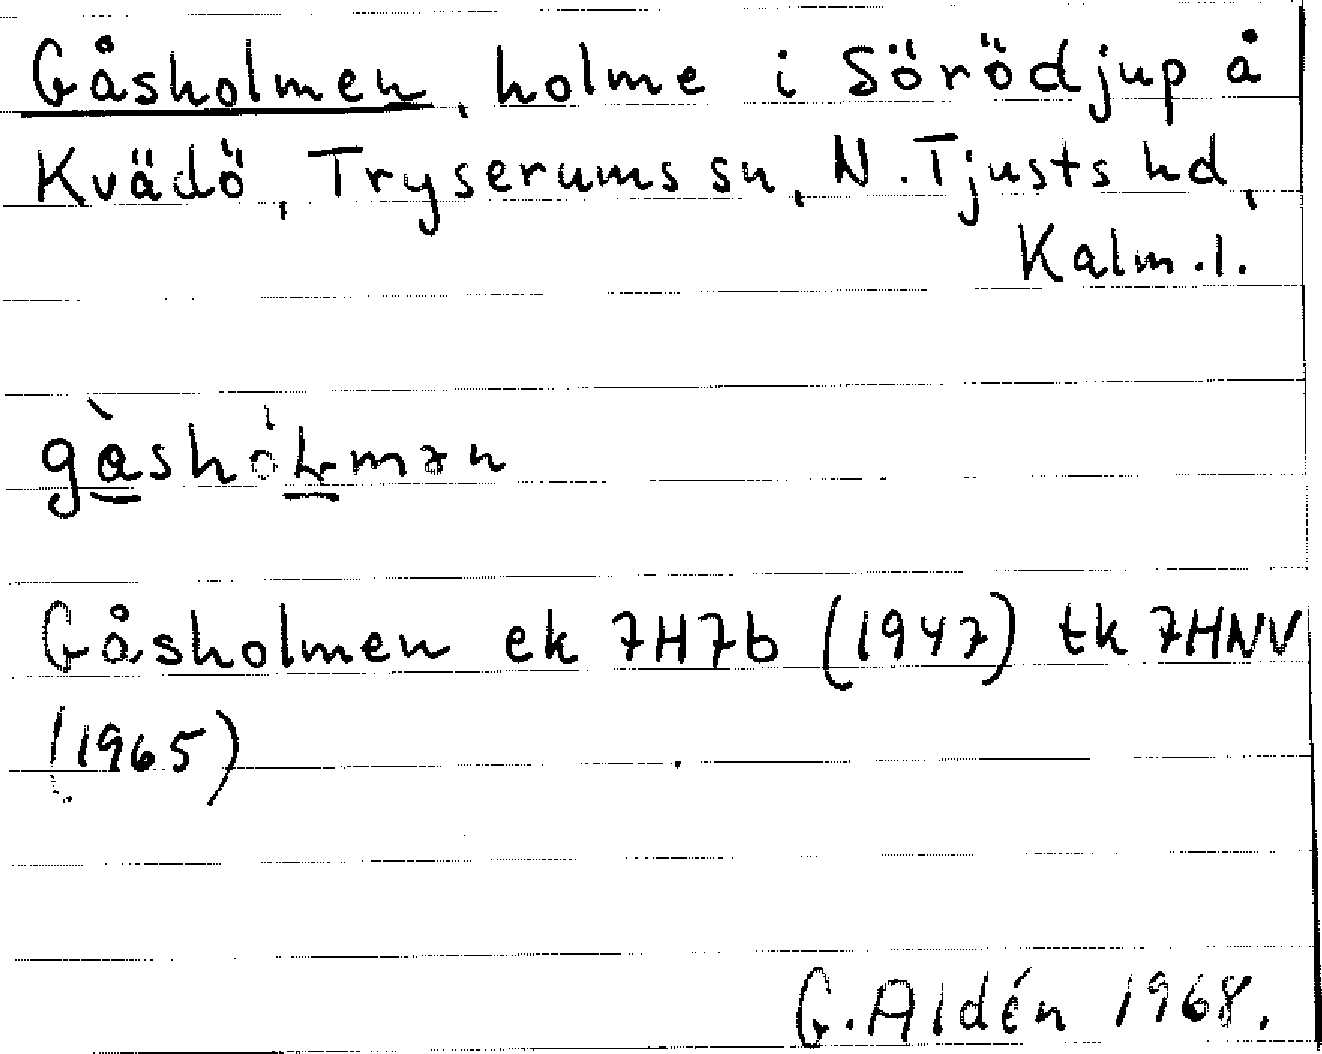 Gåsholmen, holme i Sörödjup å
Kvädö, Tryserums sn, N. Tjusts hd,
Kalm. l.
Gåsholmen ek 7H7b (1947) tk 7HNV
(1965)
G. Aldén 1968.